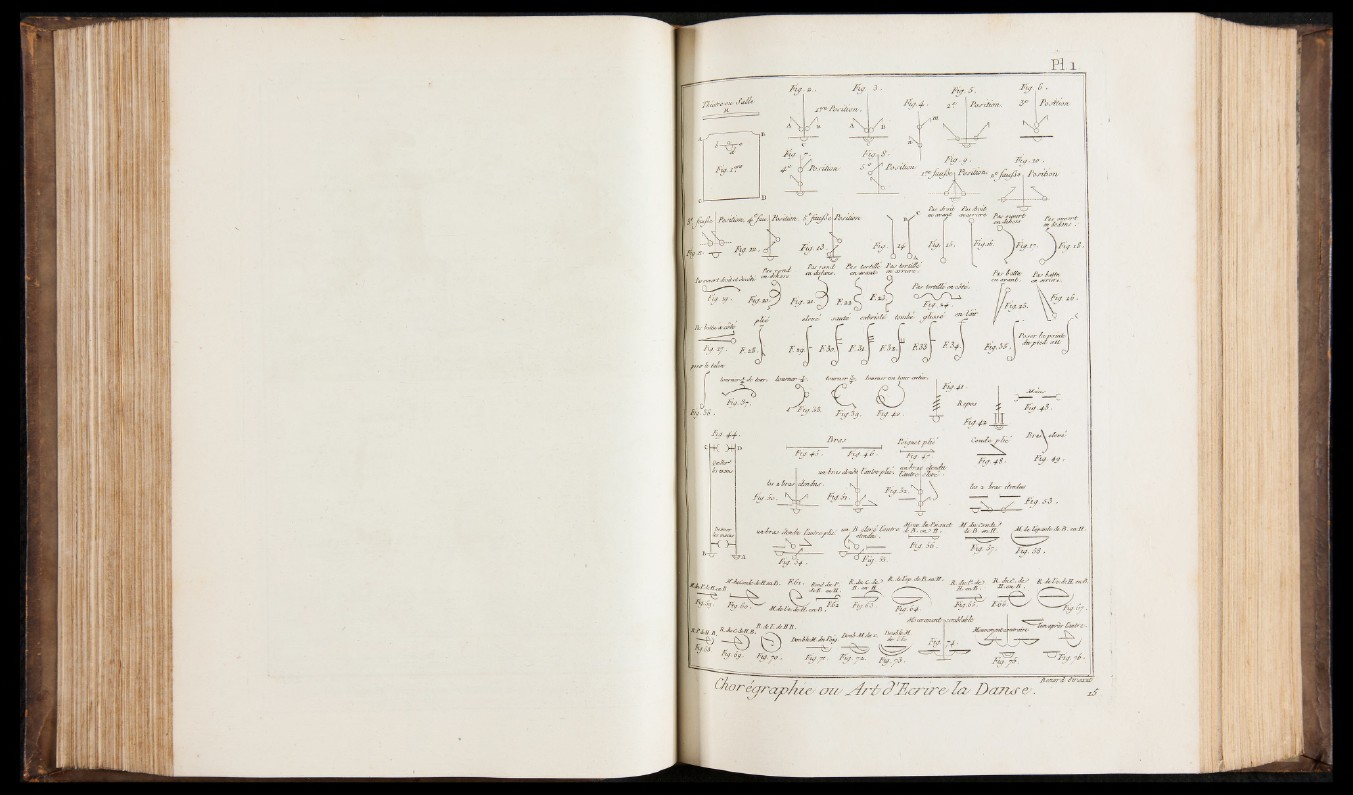 Pl 1
Fig. 2. Fig. 3. Fig. 4. Fig. 5. Fig. 6.
Theatre ou Salle
1re Position. 2e Position. 3e Position
A B A B
A B
Fig. 1re
C D
Fig. 7. Fig. 8. Fig. 9. Fig. 10.
4e Position 5e Position 1re fausse Position 2e fausse Position
3e fausse Position. 4e fau Position. 5e fausse Position
Pas droit en avant Pas droit en arriere Pas ouvert en dehors Pas ouvert en dedans
Fig. 12. Fig. 13. Fig. 14 Fig. 15. Fig. 16. Fig. 17. Fig. 18.
Pas rond en dehors Pas rond en dedans. Pas tortillé en avant. Pas tortillé en arriere.
Pas tortillé en côté. Pas battu en avant. Pas battu en arriere.
Fig. 19. Fig. 20. Fig. 21. F. 22 F. 23 Fig. 24 Fig. 25. Fig. 26.
Pas battu a côté plié elevé sauté cabriolé tombé glissé en l'air
Poser la pointe du pied
Fig. 27. F. 28. F. 29. F. 30. F. 31. F. 32. F. 33. F. 34. Fig. 35.
poser le talon
tourner ¼ de tour. tourner ½. tourner ¾. tourner un tour entier.
Fig. 41
Repos
Fig. 36. Fig. 37. Fig. 38. Fig. 39. Fig. 40. Fig. 42 Fig. 43.
Fig. 44.
C D
Bras Poignet plié Coude plié Bras elevé
Fig. 45. Fig. 46. Fig. 47 Fig. 48. Fig. 49.
quitter les mains
un bras etendu l'autre plié. un bras etendu l'autre elevé.
les 2 bras etendus. les 2 bras etendus
Fig. 50. Fig. 51. Fig. 52. Fig. 53.
Donner les mains
un bras etendu l'autre plié. un B. elevé l'autre etendu.
Mouv. du Poignet de B. en H. M. du Coude de B. en H. M. de l'épaule de B. en H.
B A
Fig. 54. Fig. 55. Fig. 56. Fig. 57. Fig. 58.
F. 61.
Fig. 59. Fig. 60. F. 62 Fig. 63. Fig. 64 Fig. 65. F. 66. Fig. 67.
Mouvement semblable
Mouvement contraire L'un après l'autre.
Double M. du Poig. Doub. M. du C. Double M. de l'Ep.
Fig. 68. Fig. 69. Fig. 70. Fig. 71. Fig. 72. Fig. 73. Fig. 74. Fig. 75. Fig. 76.
Chorégraphie ou Art d'Ecrire la Danse.